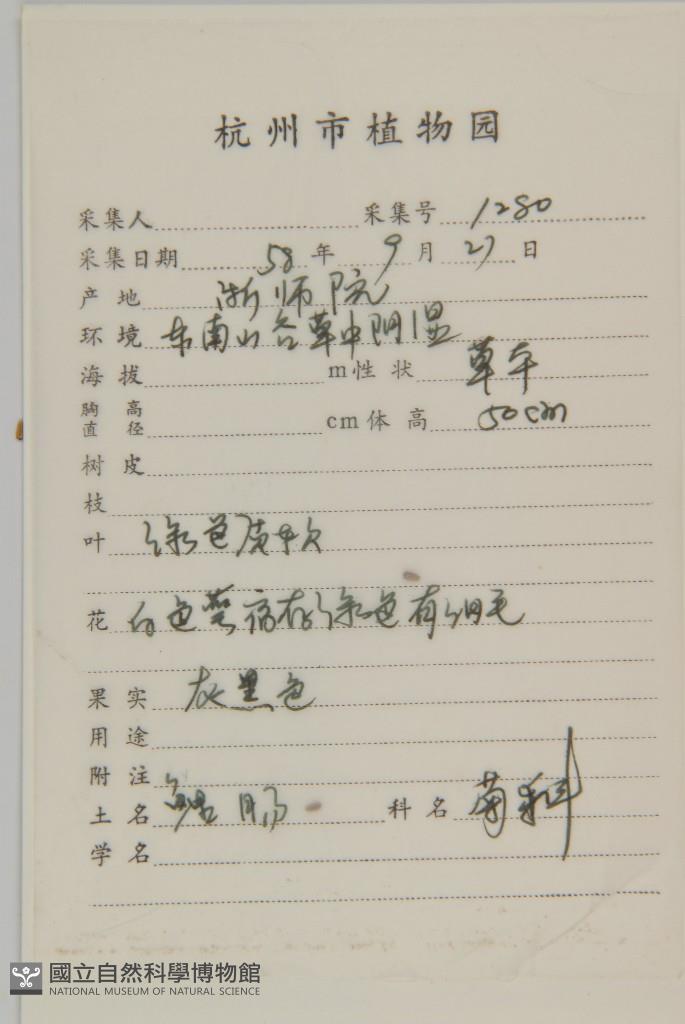 杭州市植物园
采集人 采集号 1280
采集日期 58 年 9 月 27 日
产地 浙师院
环境 东南山谷草中阴湿
海拔 m性状 草本
胸高直径 cm体高 50cm
树皮
枝
叶 绿色质软
花 白色 绿色有细毛
果实 灰黑色
用途
附注
土名 鳢肠 科名 菊科
学名
國立自然科學博物館
NATIONAL MUSEUM OF NATURAL SCIENCE